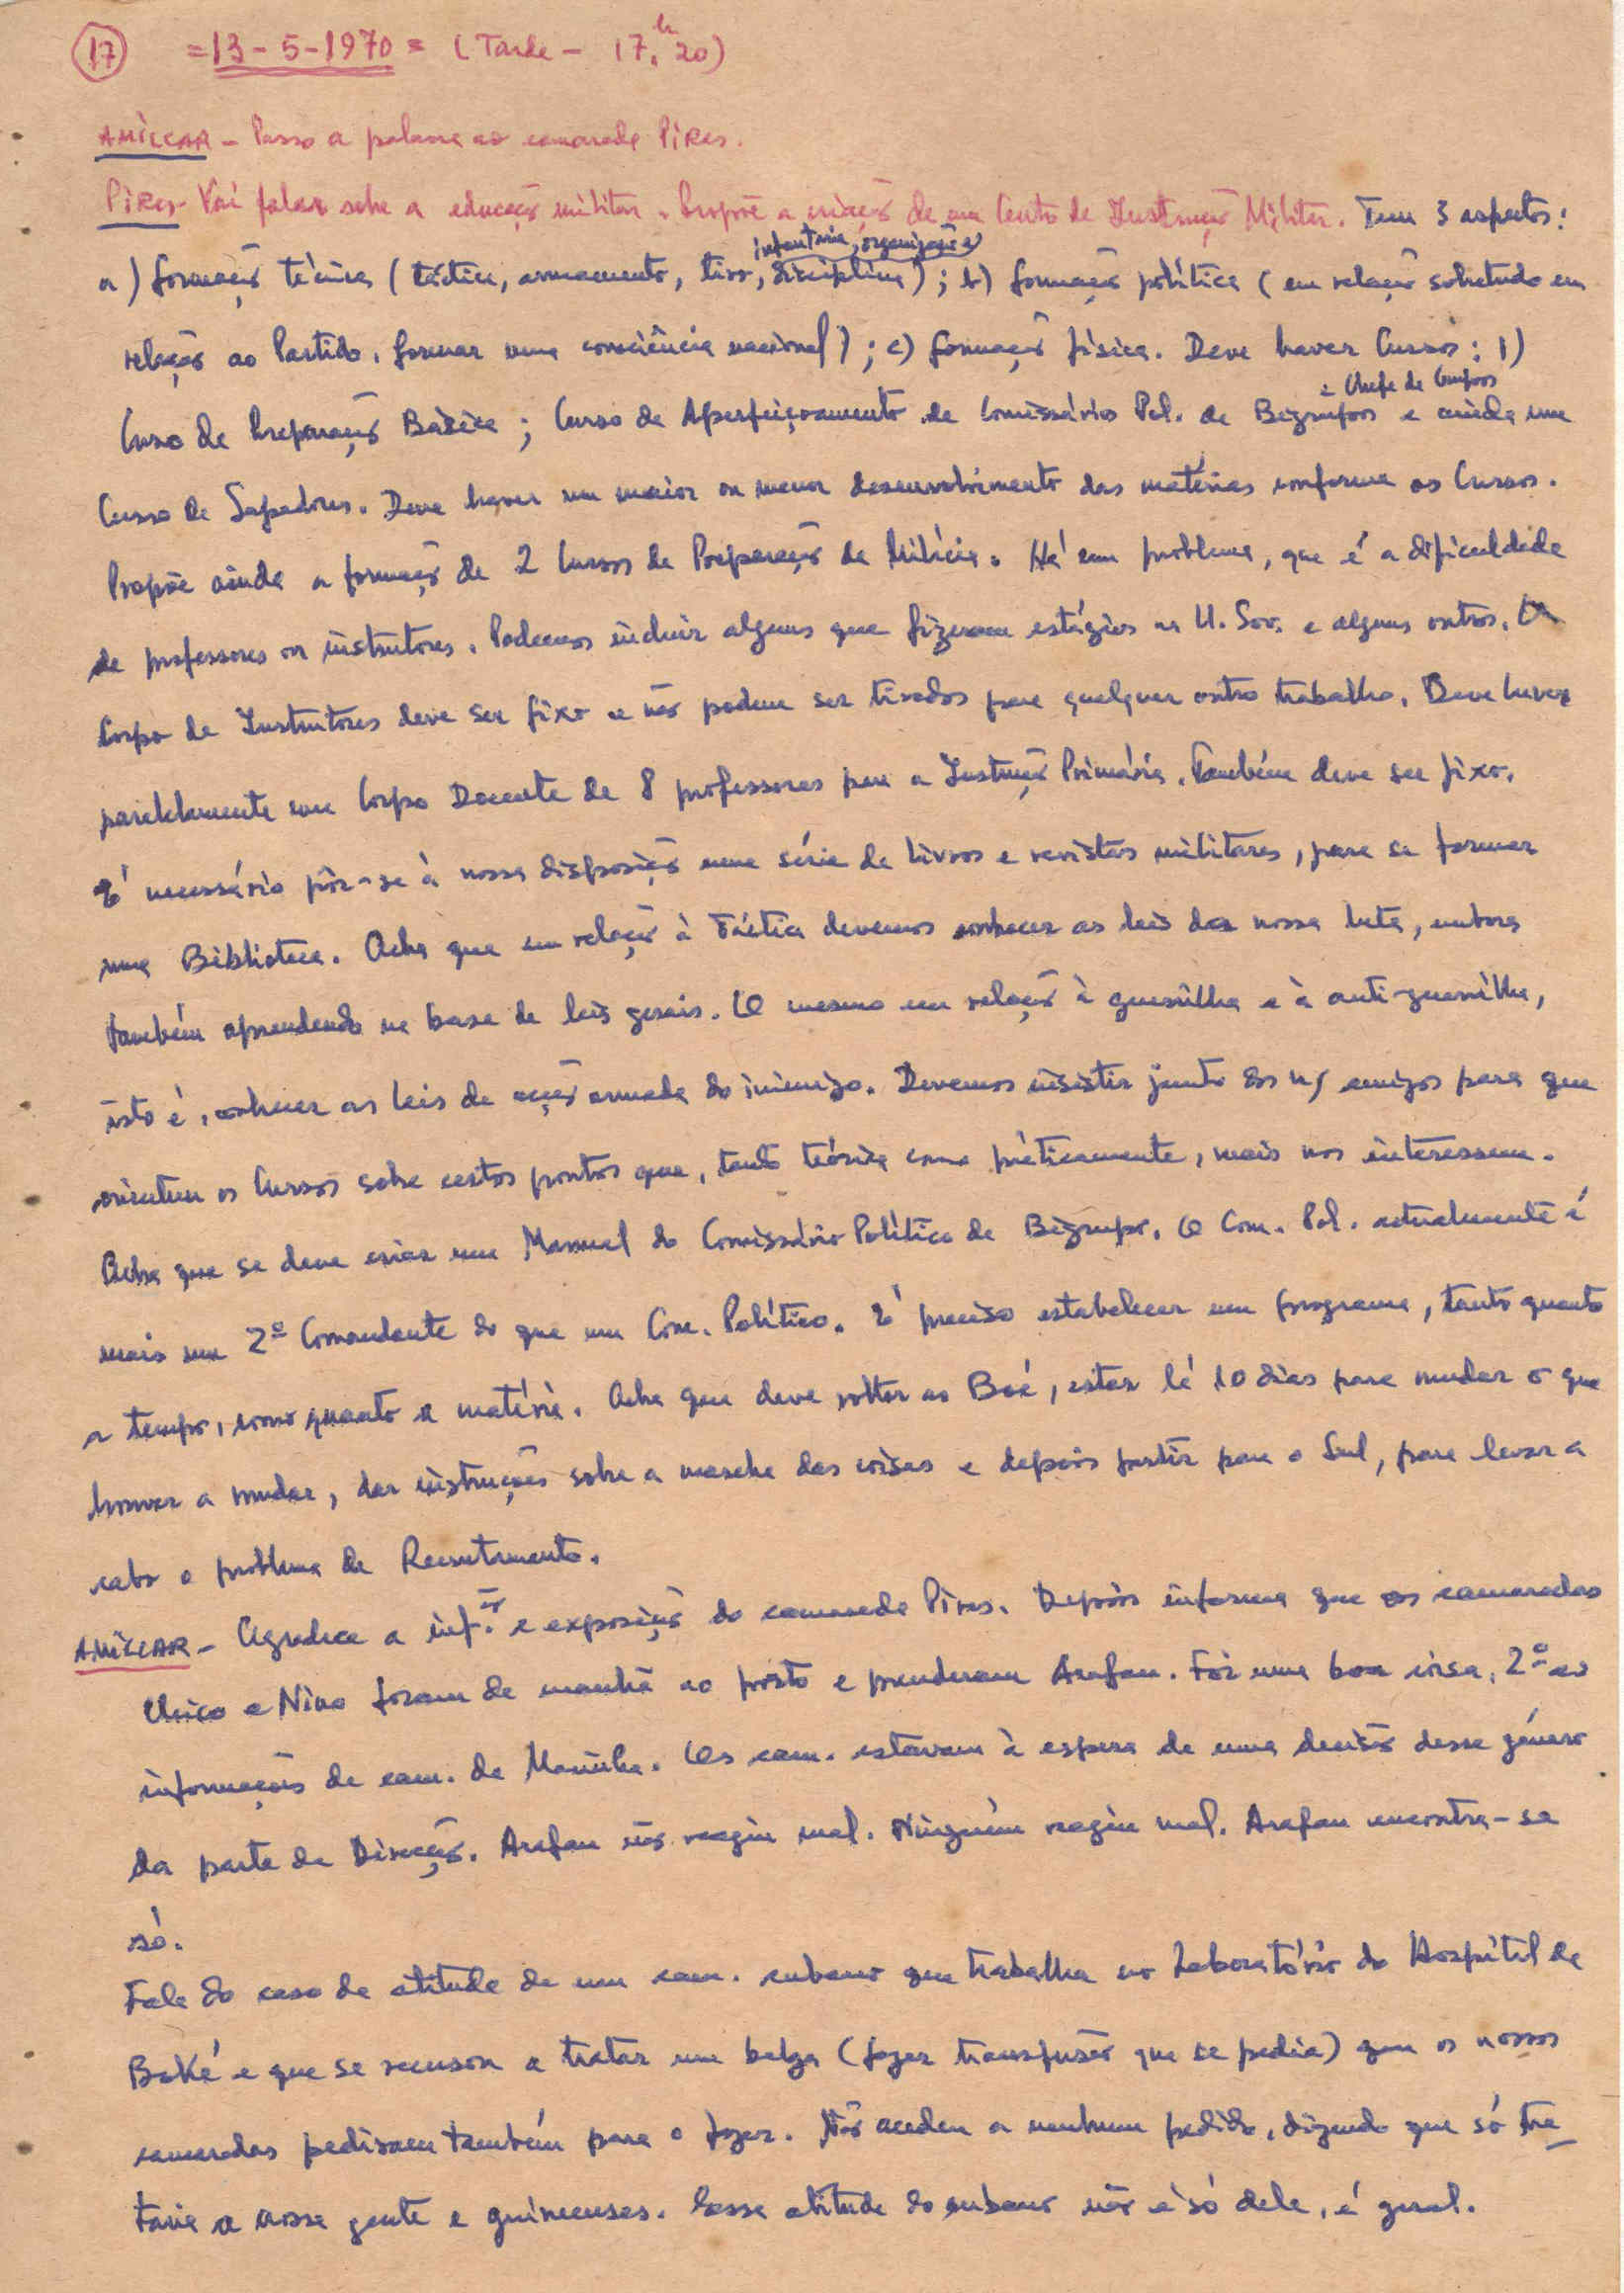 17 =13-5-1970= (Tarde - 17.h 20)
AMÍLCAR - Passo a palavra ao camarada Pires.
Pires - Vai falar sobre a educação militar. Propõe a criação de um Centro de Instrução Militar. Tem 3 aspectos:
infantaria, organização
a) formação técnica (táctica, armamento, tiro, disciplina); b) formação política (em relação sobretudo em
relação ao Partido, formar uma consciência nacional); c) formação física. Deve haver Cursos: 1)
e Chefe de Grupos
Curso de Preparação Básica; Curso de Aperfeiçoamento de Comissários Pol. de Bigrupos e ainda um
Curso de Sapadores. Deve haver um maior ou menor desenvolvimento das matérias conforme os Cursos.
Propõe ainda a formação de 2 Cursos de Preparação de Milícia. Há um problema, que é a dificuldade
de professores ou instrutores. Podemos incluir alguns que fizeram estágios na U. Sov. e alguns outros. O
Corpo de Instrutores deve ser fixo e não podem ser tirados para qualquer outro trabalho. Deve haver
paralelamente um Corpo Docente de 8 professores para a Instrução Primária. Também deve ser fixo.
É necessário pôr-se à nossa disposição uma série de livros e revistas militares, para se formar
uma Biblioteca. Acha que em relação à Táctica devemos conhecer as leis da nossa luta, embora
também aprendendo na base de leis gerais. O mesmo em relação à guerrilha e à anti-guerrilha,
isto é, conhecer as leis de acção armada do inimigo. Devemos insistir junto dos n/ amigos para que
orientem os Cursos sobre certos pontos que, tanto teórica como pràticamente, mais nos interessem.
Acha que se deve criar um Manual do Comissário Político de Bigrupo. O Com. Pol. actualmente é
mais um 2º Comandante do que um Com. Político. É preciso estabelecer um programa, tanto quanto
a tempo, como quanto a matéria. Acha que deve voltar ao Boé, estar lá 10 dias para mudar o que
houver a mudar, dar instruções sobre a marcha das coisas e depois partir para o Sul, para levar a
cabo o problema de Recrutamento.
AMÍLCAR - Agradece a inf.ão e exposição do camarada Pires. Depois informa que os camaradas
Chico e Nino foram de manhã ao porto e prenderam Arafan. Foi uma boa coisa, 2º as
informações de cam. da Marinha. Os cam. estavam à espera de uma decisão desse género
da parte da Direcção. Arafan não reagiu mal. Ninguém reagiu mal. Arafan encontra-se
só.
Fala do caso da atitude de um cam. cubano que trabalha no Laboratório do Hospital de
Boké e que se recusou a tratar um belga (fazer transfusão que se pedia) que os nossos
camaradas pediram também para o fazer. Não acedeu a nenhum pedido, dizendo que só tra-
taria a nossa gente e guineenses. Essa atitude do cubano não é só dele, é geral.